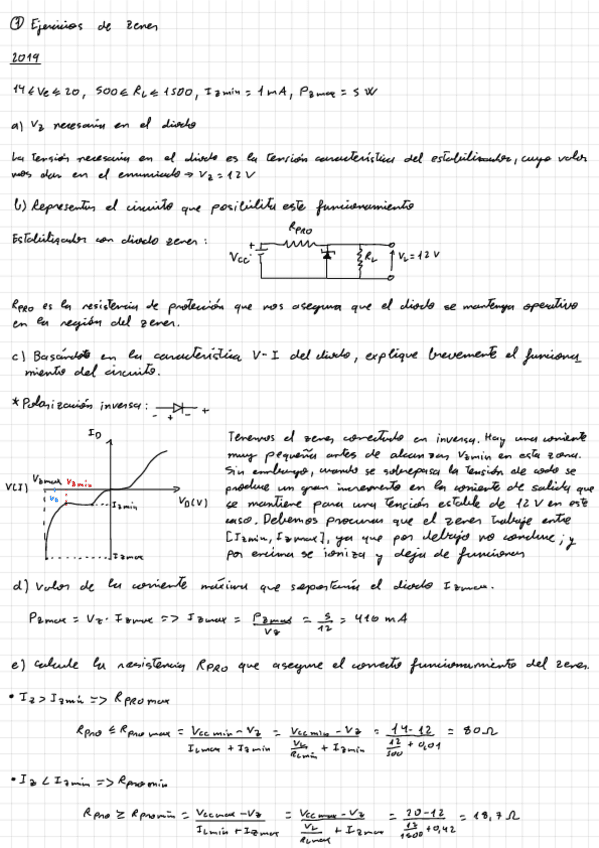 ① Ejercicios de zener
2019
14 ≤ Ve ≤ 20, 500 ≤ RL ≤ 1500, Izmin = 1 mA, Pzmax = 5 W
a) Vz necesaria en el diodo
La tensión necesaria en el diodo es la tensión característica del estabilizador, cuyo valor
nos dan en el enunciado → Vz = 12 V
b) Representar el circuito que posibilita este funcionamiento
Estabilizador con diodo zener:
RPRO
+
Vcc
-
RL
VL = 12 V
RPRO es la resistencia de protección que nos asegura que el diodo se mantenga operativo
en la región del zener.
c) Basándote en la característica V-I del diodo, explique brevemente el funciona
miento del circuito.
* Polarización inversa:
- +
ID
V(I) Vzmax Vzmin
VD(V)
Izmin
Izmax
Tenemos el zener conectado en inversa. Hay una corriente
muy pequeña antes de alcanzar Vzmin en esta zona.
Sin embargo, cuando se sobrepasa la tensión de codo se
produce un gran incremento en la corriente de salida que
se mantiene para una tensión estable de 12 V en este
caso. Debemos procurar que el zener trabaje entre
[Izmin, Izmax], ya que por debajo no conduce; y
por encima se ioniza y deja de funcionar
d) Valor de la corriente máxima que soportaría el diodo Izmax.
Pzmax = Vz · Izmax => Izmax = Pzmax/Vz = 5/12 = 410 mA
e) Calcule la resistencia RPRO que asegure el correcto funcionamiento del zener.
• Iz > Izmin => RPRO max
RPRO ≤ RPRO max = (Vcc min - Vz)/(ILmax + Izmin) = (Vcc min - Vz)/(VL/RLmin + Izmin) = (14-12)/(12/500 + 0,01) = 80 Ω
• Iz < Izmin => RPROmin
RPRO ≥ RPROmin = (Vccmax - Vz)/(ILmin + Izmax) = (Vccmax - Vz)/(VL/RLmax + Izmax) = (20-12)/(12/1500 + 0,42) = 18,7 Ω